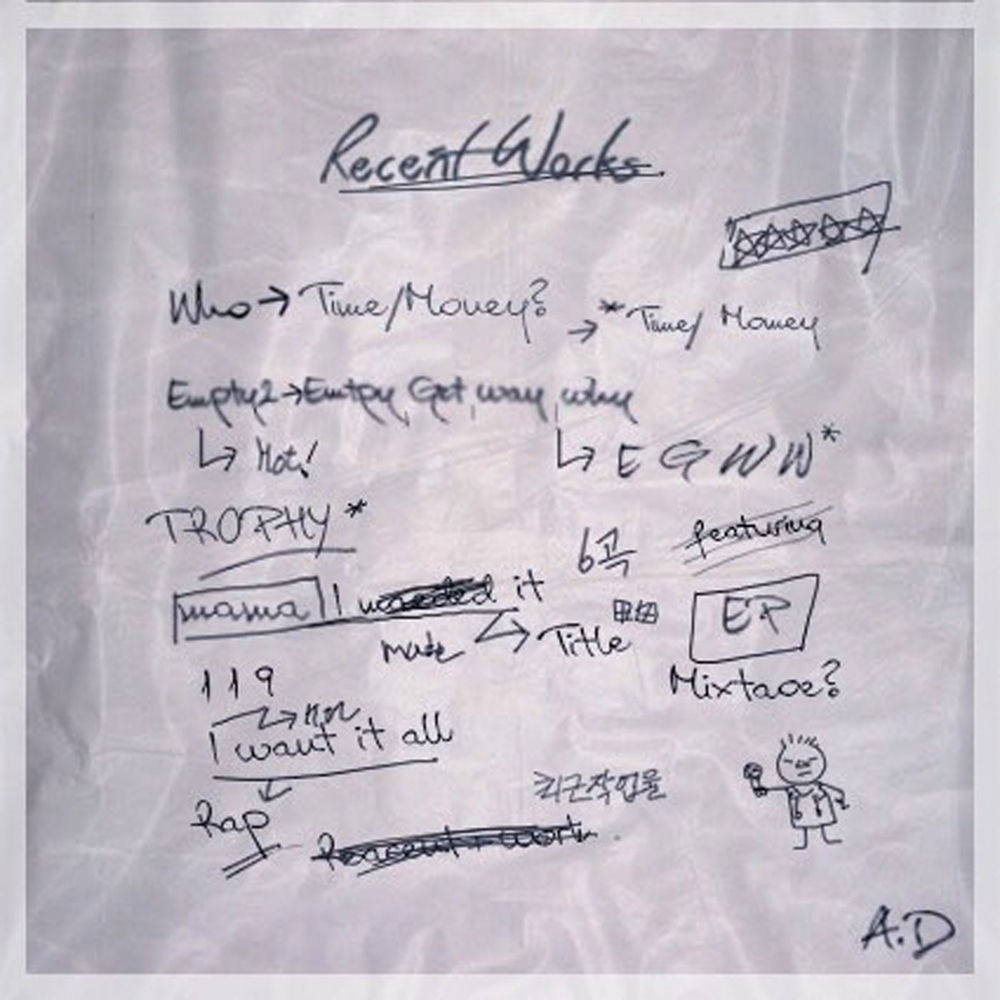 Recent Works.
Who → Time/Money?
→ *Time/ Money
Empty2→Emtpy, Get, way, why
↳ Hot!
↳ E G W W*
TROPHY *
6곡
featuring
mama I wanted it
made → Title
EP
Mixtaoe?
119
I want it all
최근작업물
Rap
work
A.D